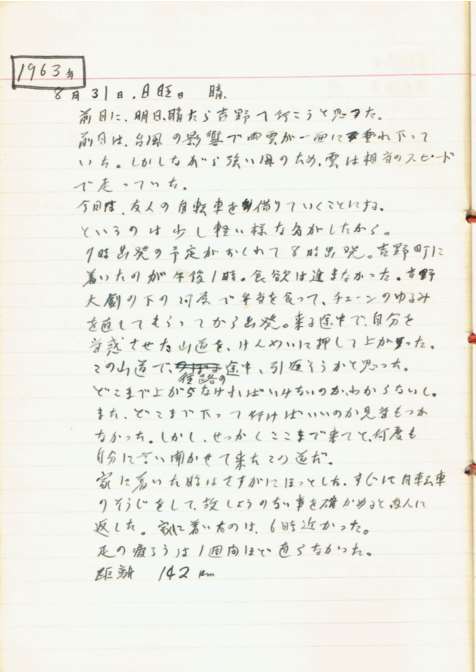 1963年
8月31日.日曜日 晴.
前日に、明日、晴たら吉野へ行こうと思った。
前日は、台風の影響で雨雲が一面に垂れ下って
いた。しかしながら強い風のため、雲は相当のスピード
で走っていた。
今日は、友人の自転車を借りていくことにする。
というのは少し軽い様な気がしたから。
7時出発の予定がおくれて8時出発。吉野町に
着いたのが午後1時。食欲は進まなかった。吉野
大劇の下の河原で弁当を食って、チェーンのゆるみ
を直してもらってから出発。来る途中で、自分を
当惑させた山道を、けんめいに押して上がった。
この山道で、途中、引返そうかと思った。
経路の
どこまで上がらなければいけないのか、わからないし。
また、どこまで下って行けばいいのか見当もつか
なかった。しかし、せっかくここまで来てと、何度も
自分に言い聞かせて来たこの道だ。
家に着いた時はさすがにほっとした。すぐに自転車
のそうじをして、故しょうのない事を確かめると友人に
返した。家に着いたのは、6時近かった。
足の疲ろうは1週間ほど直らなかった。
距離 142 km